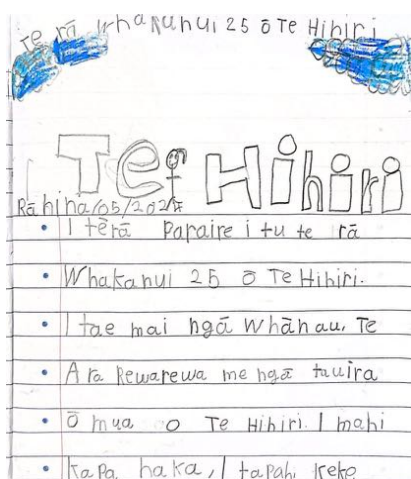 Te rā whakanui 25 ō Te Hihiri
Te Hihiri
Rāhina/05/2024
I tērā Paraire i tu te rā
Whakanui 25 ō Te Hihiri.
I tae mai ngā whānau, Te
Ara Rewarewa me ngā tauira
Ō mua o Te Hihiri. I mahi
Kapa haka, I tapahi keke